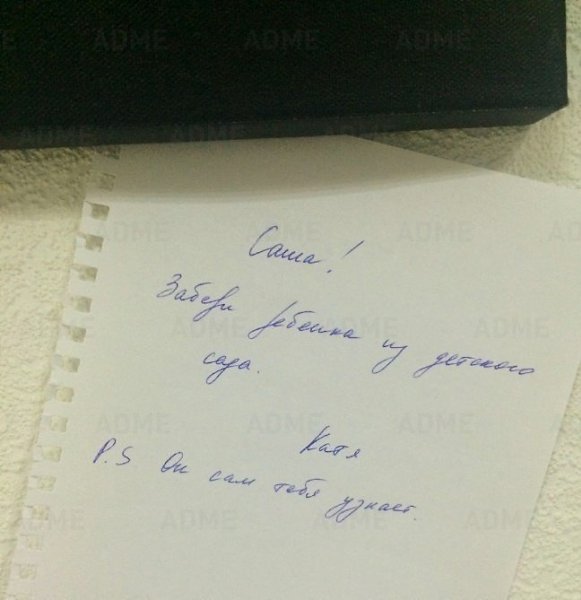 ADME ADME ADME
Саша!
Забери ребенка из детского
сада.
Катя
P.S Он сам тебя узнает.